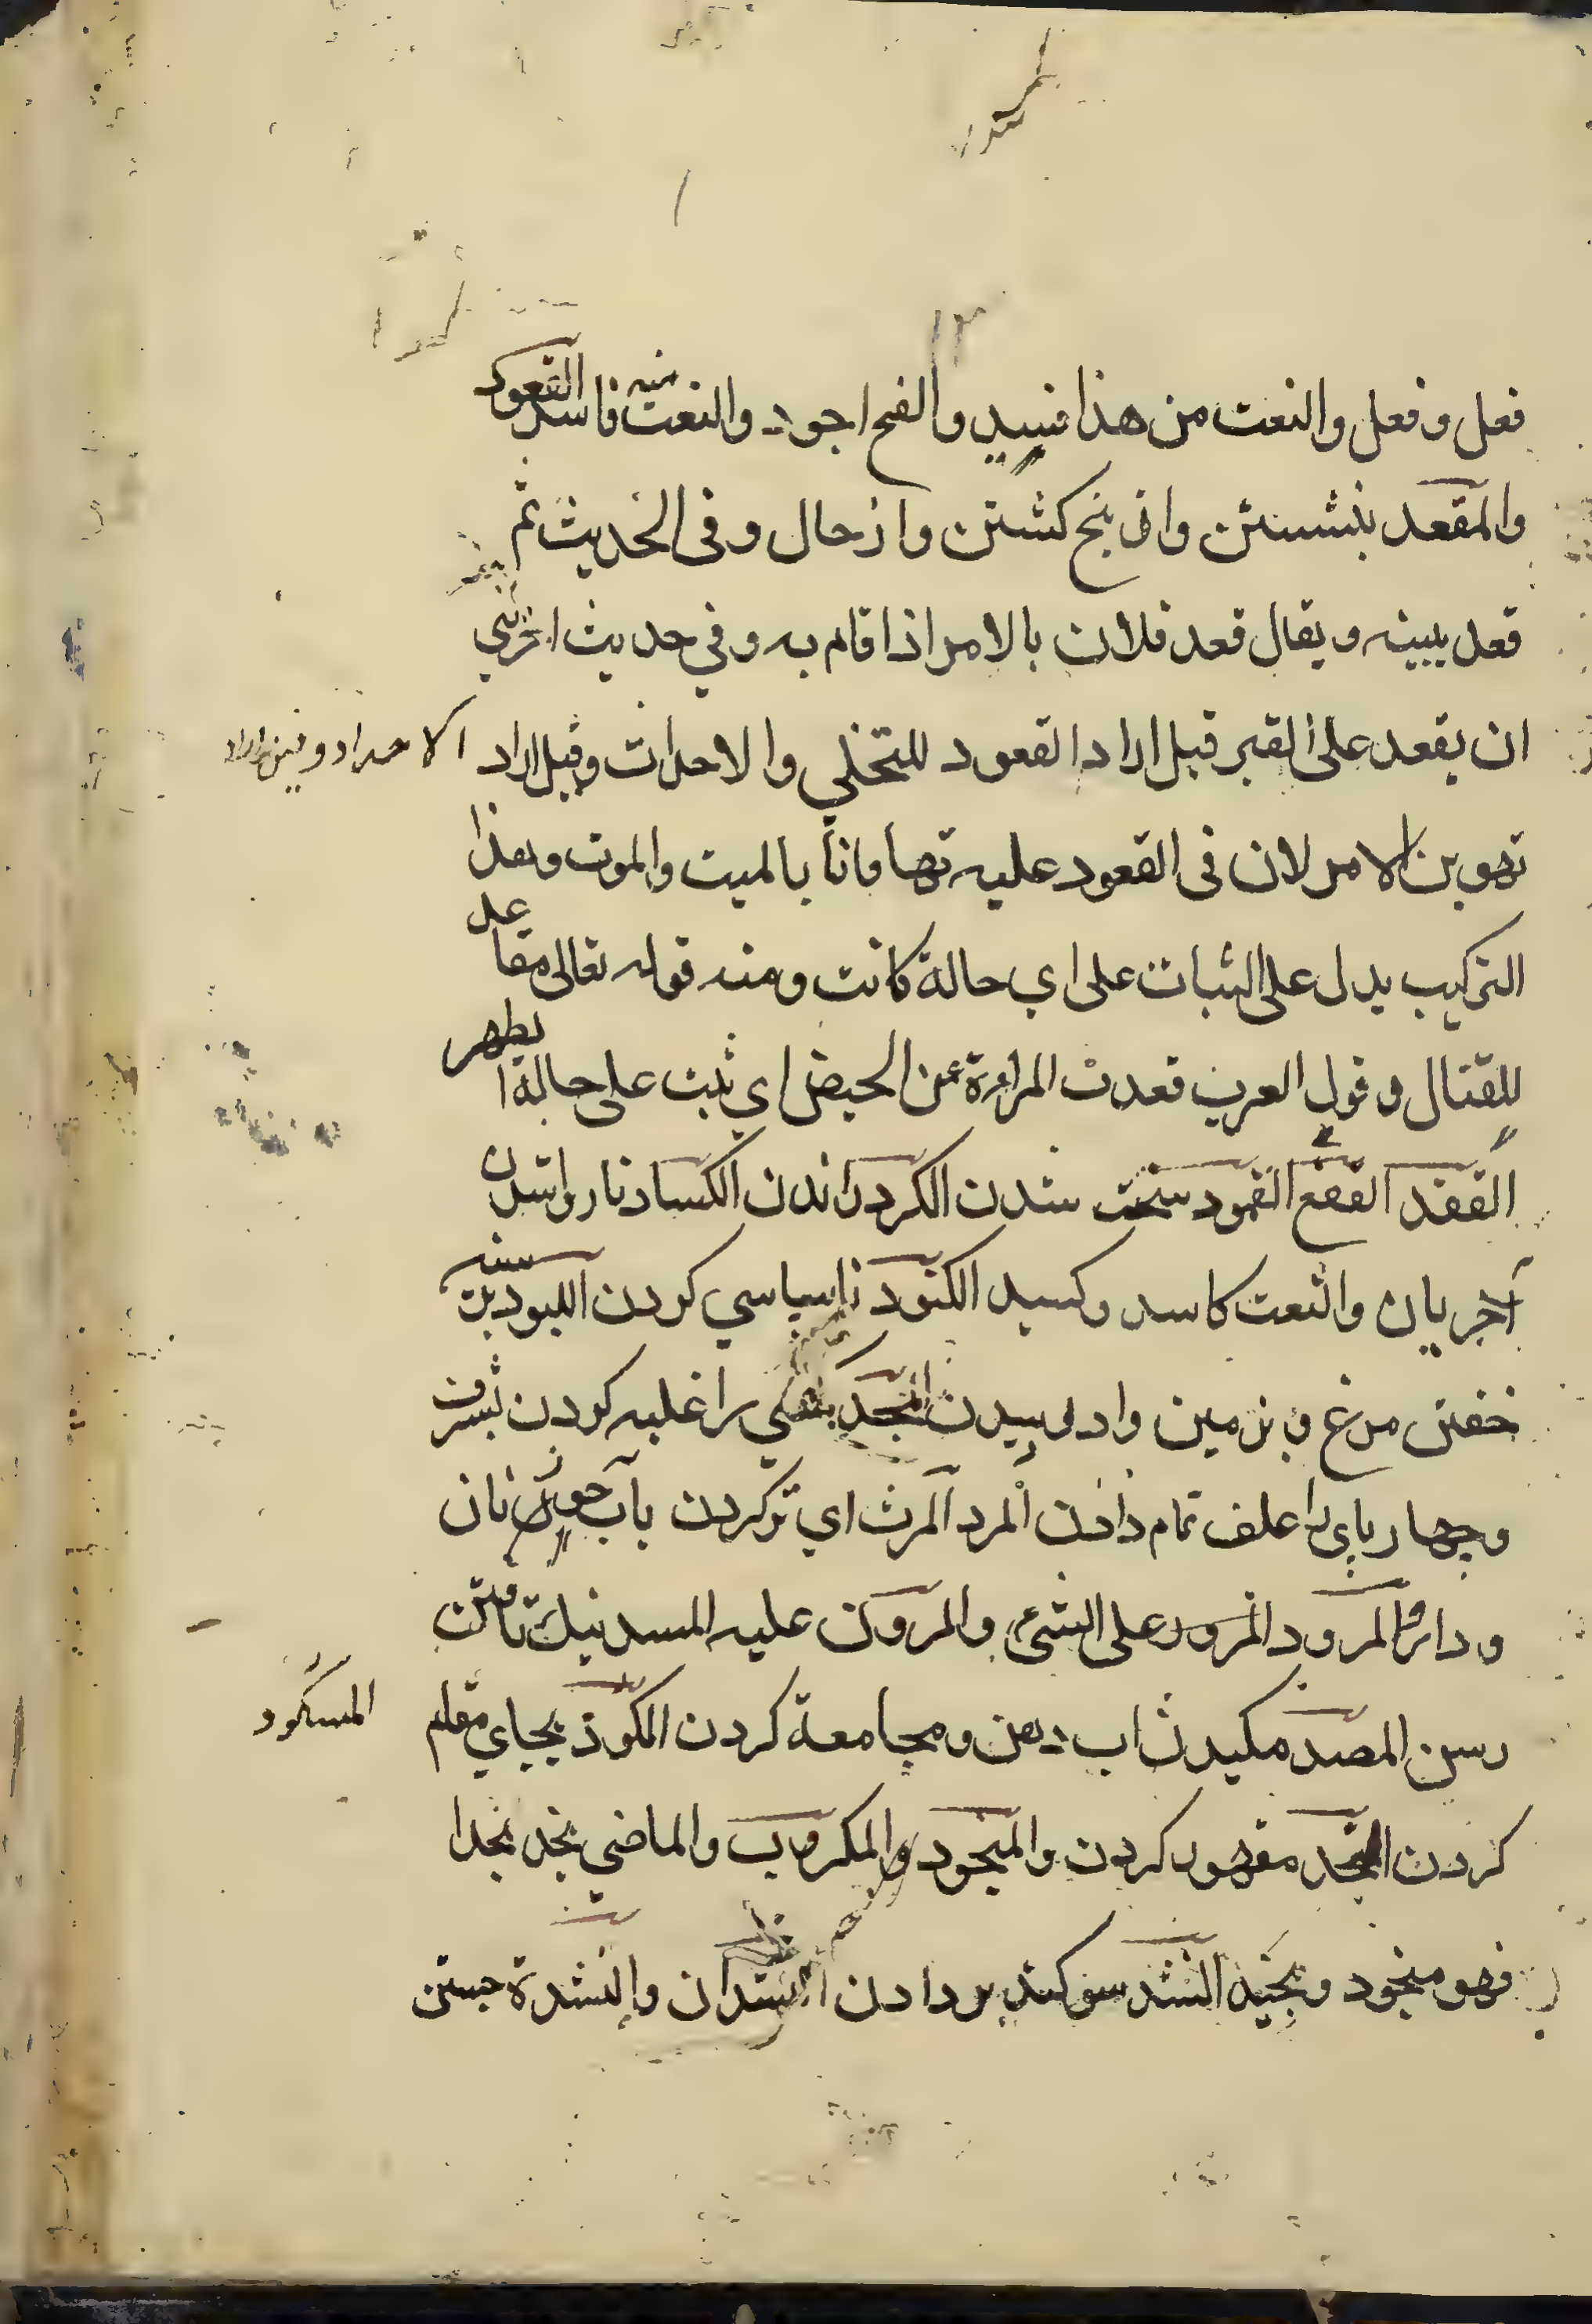 فعل وفعل والنعت من هذا فسيد والفتح اجود والنعت منه فاسد القعود
والمقعد بنشستن واز نج كشتن واز حال وفى الحديث ثم
قعد يبينه ويقال قعد فلان بالامر اذا قام به وفي حديث اخر نهي
ان يقعد على القبر قيل اراد القعود للتخلي والاحداث وقيل اراد
تهوين الامر لان فى القعود عليه تهاونا بالميت والموت وهذا
التركيب يدل على الثبات على اي حالة كانت ومنه قوله تعالى مقاعد
للقتال وقول العرب قعدت المراءة عن الحيض اي ثبت على حالة الطهر
القفد القفع القمود سخت شدن الكرد راندن الكساد ناروا شدن
آخريان والنعت كاسد وكسيد الكنود ناسپاسي كردن اللبود بر سينه
خفتن مرغ بر زمين المجد كسي را غلبه كردن بشرف
وچهارپاى را علف تمام دادن المرد المرث اي تر كردن باب نان
المرود المرود على الشئ والمرون عليه المسد نيك تافتن
رسن المصد مكيدن اب دهن ومجامعة كردن
كردن النجد مقهور كردن والمنجود والمكروب والماضي نجد نجدا
فهو منجود ونجيد النشد سوكند بر دادن النشدان والنشدة جستن